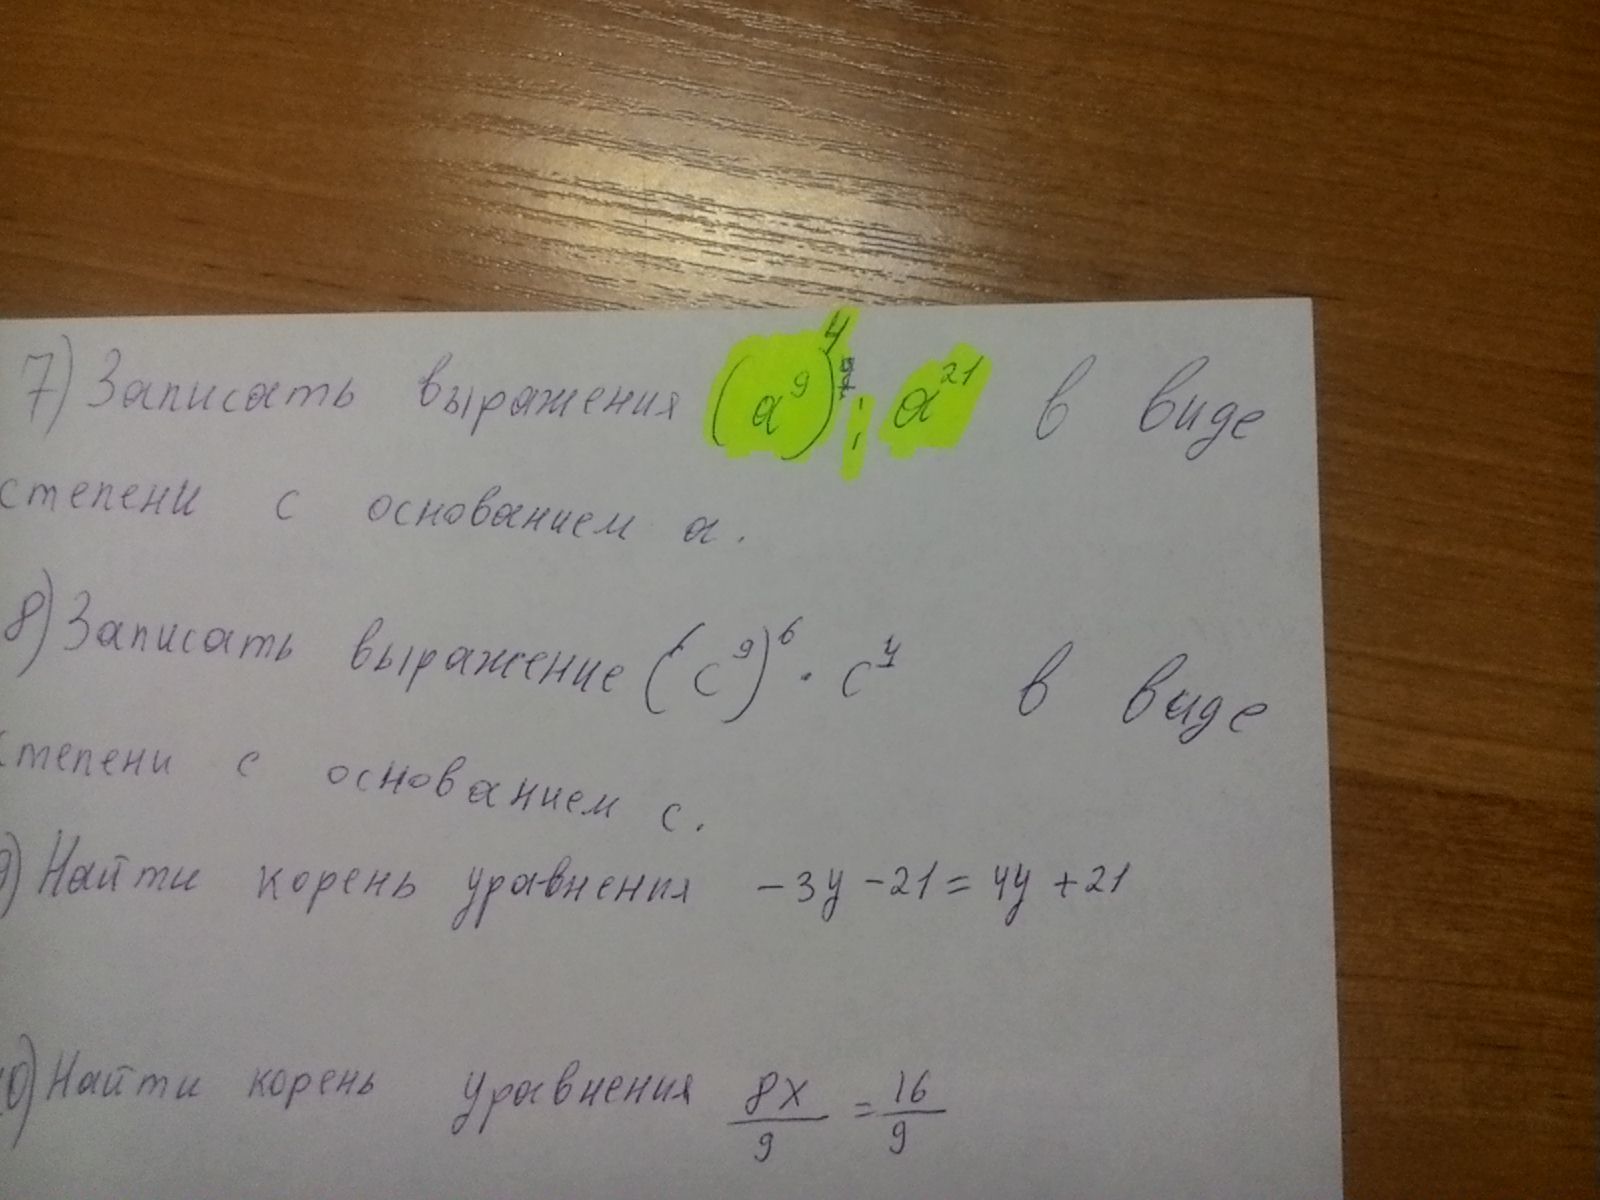 7) Записать выражения (a⁹)⁴ : a²¹ в виде
степени с основанием a.
8) Записать выражение (c⁹)⁶ · c⁴ в виде
степени с основанием c.
9) Найти корень уравнения -3y - 21 = 4y + 21
10) Найти корень уравнения 8x/9 = 16/9